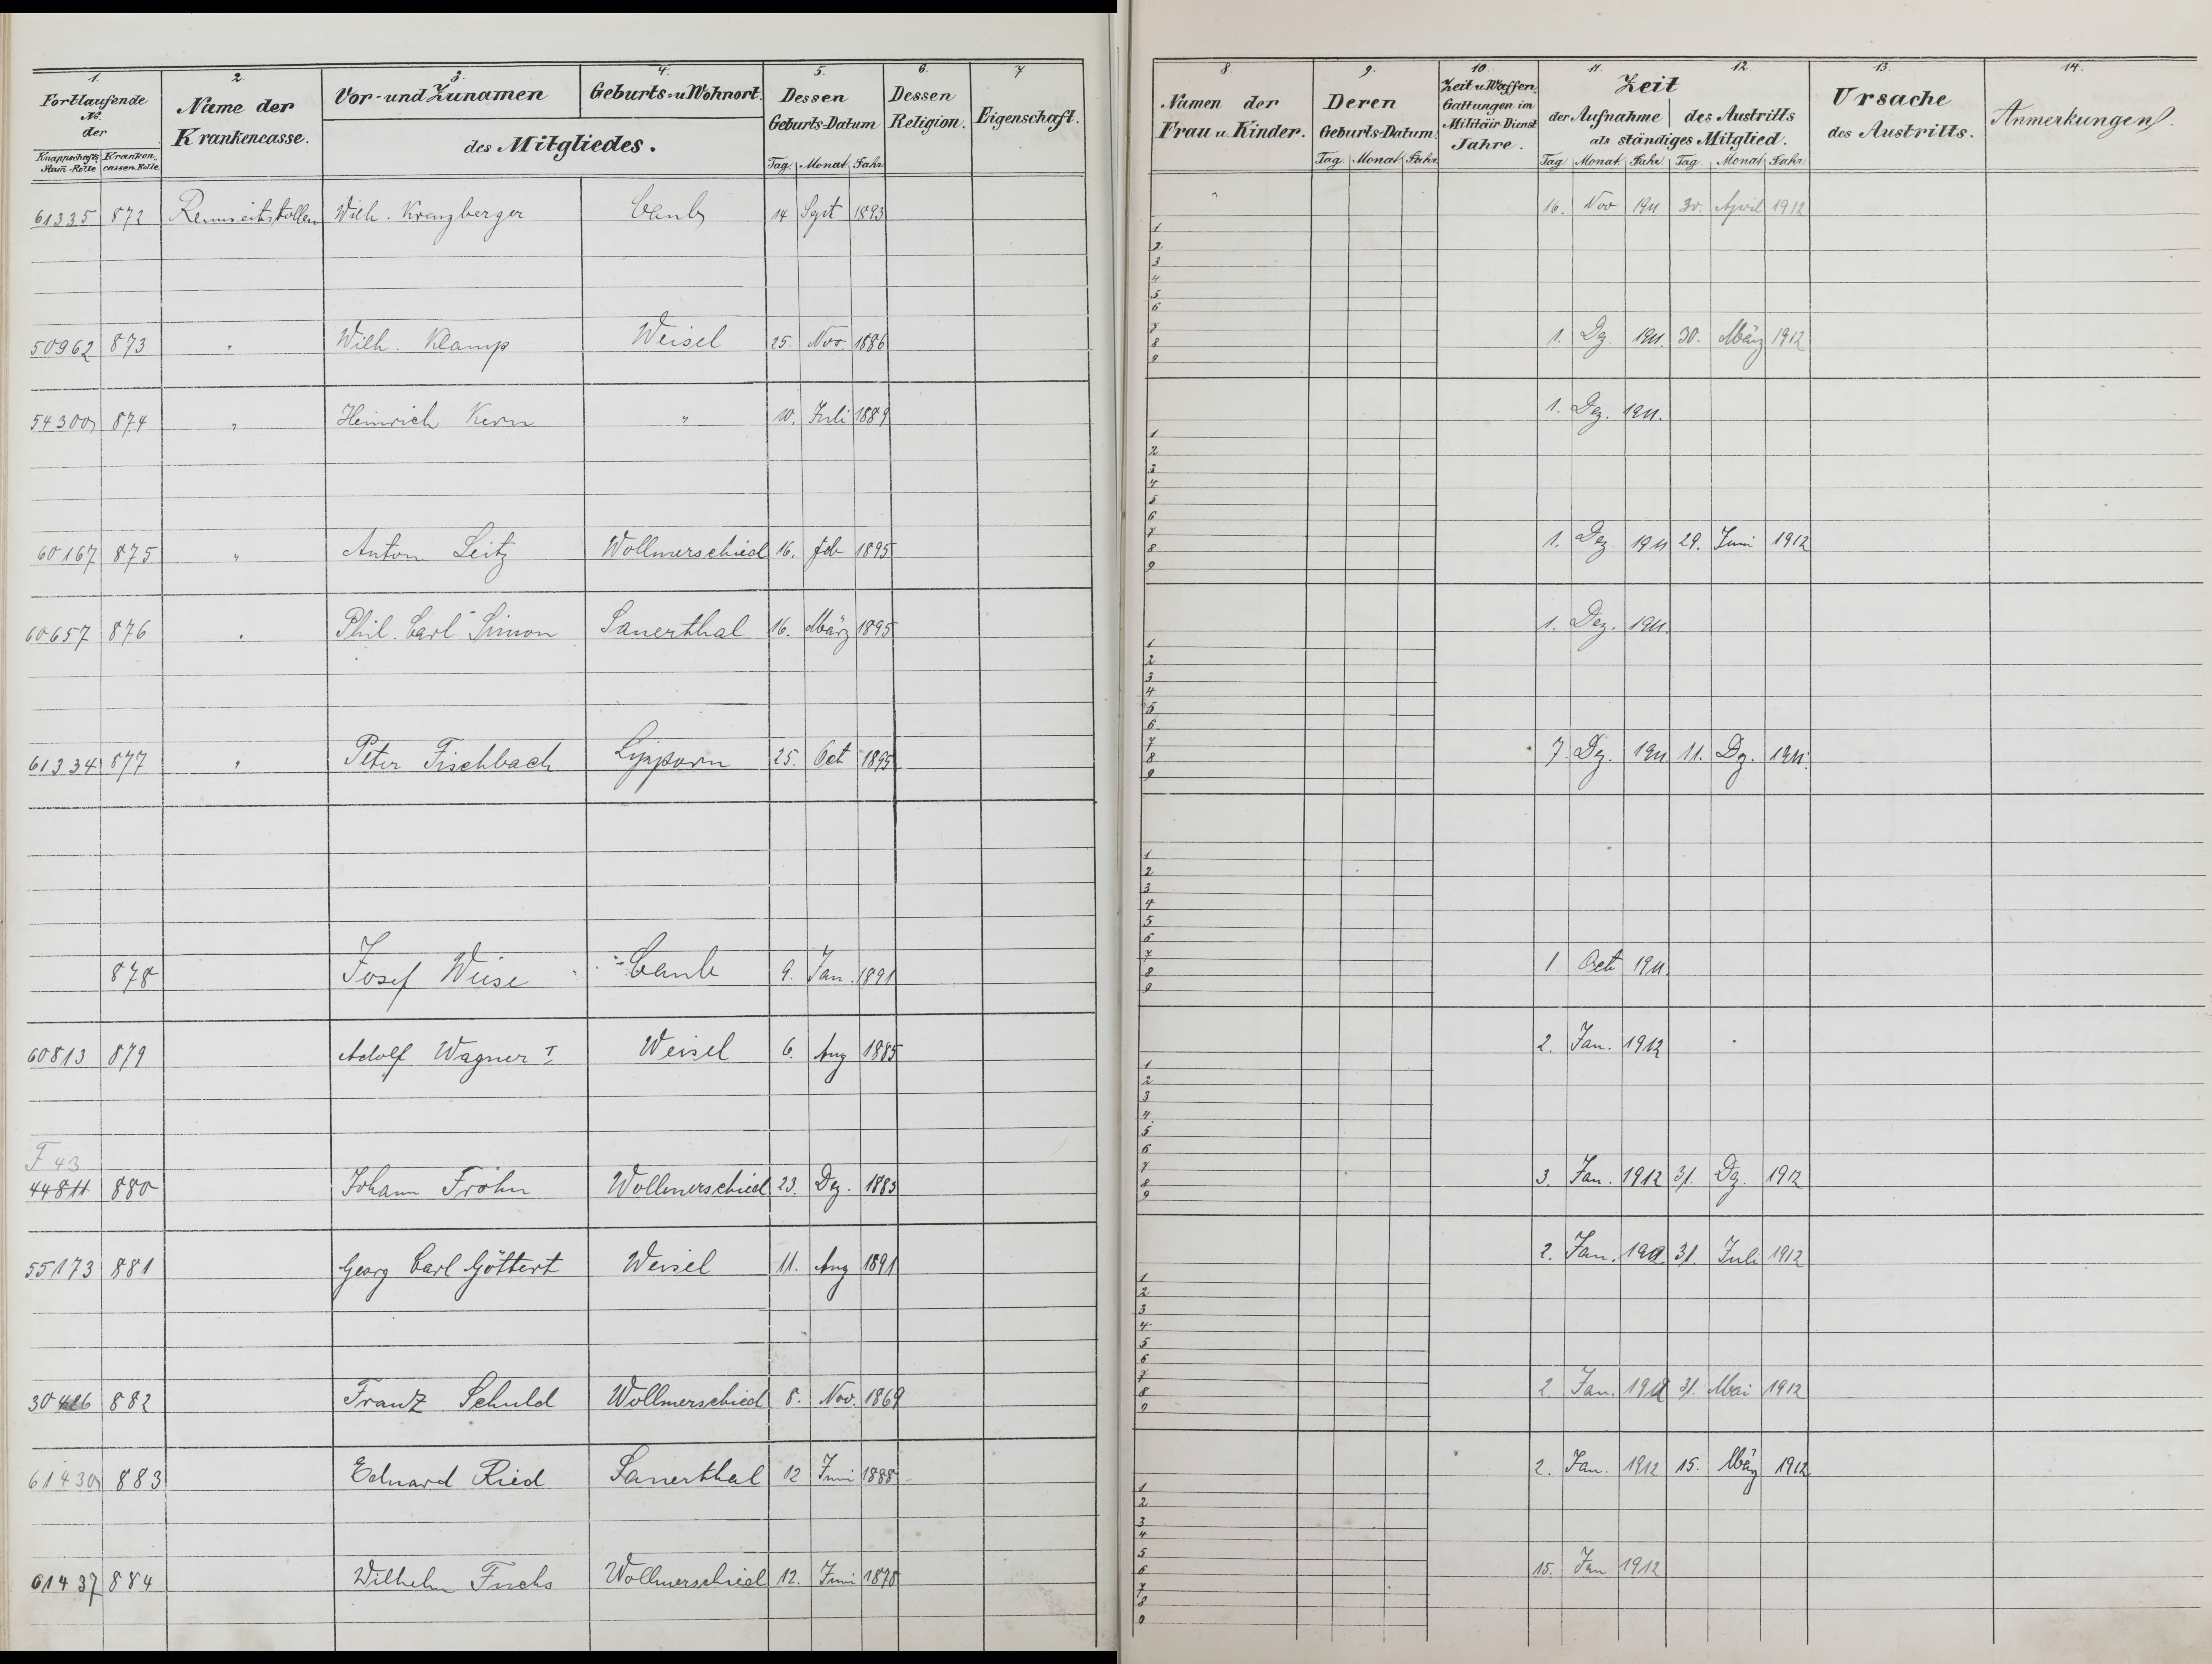 1. 2. 3. 4. 5. 6. 7
Fortlaufende No. der
Knappschafts Stam-Rolle Kranken-cassen Rolle
Name der Krankencasse.
Vor- und Zunamen Geburts- u Wohnort.
des Mitgliedes.
Dessen Geburts-Datum
Tag. Monat Jahr
Dessen Religion.
Eigenschaft.
61335 872 Wilh. Kranzberger Caub 14 Sept 1893
50962 873 " Wilh. Klamp Weisel 25. Nov. 1886
54300 874 " Heinrich Kern " 10. Juli 1889
60167 875 " Anton Leitz Wollmerschied 16. Feb 1895
60657 876 " Phil. Carl Simon Sauerthal 16. März 1895
61334 877 " Peter Fischbach Lipporn 25. Oct 1895
878 Josef Weise Caub 9. Jan. 1891
60813 879 Adolf Wagner I Weisel 6. Aug 1885
F 43
44811 880 Johann Fröhn Wollmerschied 23. Dez. 1883
55173 881 Georg Carl Göttert Weisel 11. Aug 1891
882 Franz Schuld Wollmerschied 8. Nov. 1869
61430 883 Eduard Ried Sauerthal 12 Juni 1888
61437 884 Wilhelm Fuchs Wollmerschied 12. Juni 1870
8 9. 10. 11. 12. 13. 14.
Namen der Frau u. Kinder.
Deren Geburts-Datum
Tag Monat Jahr
Zeit u. Waffen-Gattungen im Militäir-Dienst Jahre.
Zeit
der Aufnahme des Austritts
als ständiges Mitglied.
Tag Monat Jahr Tag. Monat Jahr
Ursache des Austritts.
Anmerkungen.
16. Nov 1911 30. April 1912
1
2
3
4
5
6
7
8 1. Dz. 1911. 30. März 1912
9
1. Dez. 1911.
1
2
3
4
5
6
7
8 1. Dez. 1911 29. Juni 1912
9
1. Dez. 1911.
1
2
3
4
5
6
7
8 7. Dz. 1911 11. Dz. 1911.
9
1
2
3
4
5
6
7
8 1 Oct 1911.
9
2. Jan. 1912
1
2
3
4
5
6
7
8 3. Jan. 1912 31. Dz. 1912
9
2. Jan. 1912 31. Juli 1912
1
2
3
4
5
6
7
8 2. Jan. 1912 31. Mai 1912
9
2. Jan. 1912 15. März 1912
1
2
3
4
5
6 15. Jan 1912
7
8
9